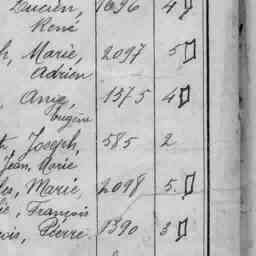 Lucien, 1696 4
René
Marie, 2097 5
Adrien
Ange, 1575 4
Eugène
Joseph, 585 2
Jean Marie
Marie, 2098 5.
François
Pierre 1390 3